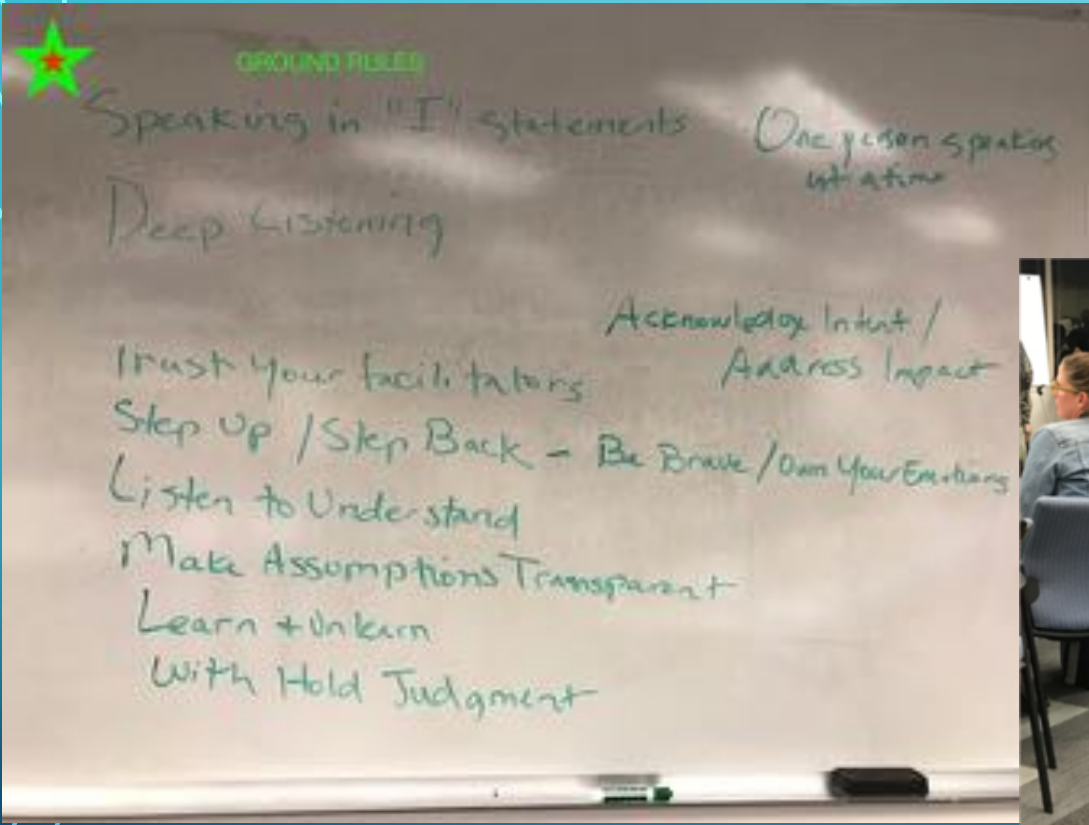 GROUND RULES
Speaking in "I" statements
One person speaking
at a time
Deep Listening
Acknowledge Intent /
Address Impact
Trust Your facilitators
Step Up / Step Back - Be Brave / Own Your Emotions
Listen to Understand
Make Assumptions Transparent
Learn + Unlearn
With Hold Judgment